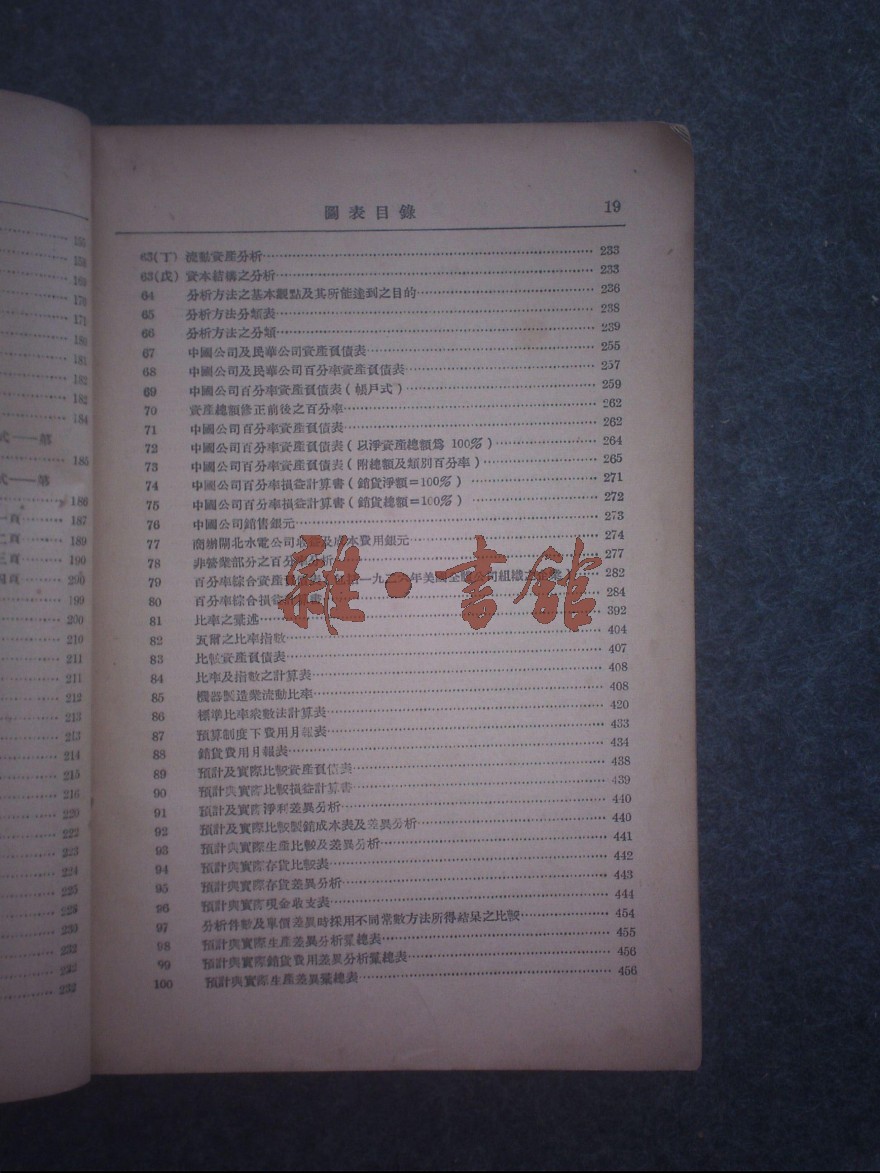 155
158
169
170
171
180
181
182
182
184
式——第
185
式——第
186
一頁 187
二頁 189
三頁 190
四頁 290
199
200
210
211
211
212
213
213
214
215
216
220
222
223
224
225
225
230
232
232
232
圖表目錄 19
63(丁) 流動資產分析 233
63(戊) 資本結構之分析 233
64 分析方法之基本觀點及其所能達到之目的 236
65 分析方法分類表 238
66 分析方法之分類 239
67 中國公司及民華公司資產負債表 255
68 中國公司及民華公司百分率資產負債表 257
69 中國公司百分率資產負債表(帳戶式) 259
70 資產總額修正前後之百分率 262
71 中國公司百分率資產負債表 262
72 中國公司百分率資產負債表(以淨資產總額爲 100%) 264
73 中國公司百分率資產負債表(附總額及類別百分率) 265
74 中國公司百分率損益計算書(銷貨淨額=100%) 271
75 中國公司百分率損益計算書(銷貨總額=100%) 272
76 中國公司銷售銀元 273
77 商辦閘北水電公司收益及成本費用銀元 274
78 非營業部分之百分率分析 277
79 百分率綜合資產負債表 一九二六年美國全體公司組織之企業 282
80 百分率綜合損益計算書 284
81 比率之彙述 392
82 瓦爾之比率指數 404
83 比較資產負債表 407
84 比率及指數之計算表 408
85 機器製造業流動比率 408
86 標準比率乘數法計算表 420
87 預算制度下費用月報表 433
88 銷貨費用月報表 434
89 預計及實際比較資產負債表 438
90 預計與實際比較損益計算書 439
91 預計及實際淨利差異分析 440
92 預計及實際比較製銷成本表及差異分析 440
93 預計與實際生產比較及差異分析 441
94 預計與實際存貨比較表 442
95 預計與實際存貨差異分析 443
96 預計與實際現金收支表 444
97 分析件數及單價差異時採用不同常數方法所得結果之比較 454
98 預計與實際生產差異分析彙總表 455
99 預計與實際銷貨費用差異分析彙總表 456
100 預計與實際生產差異彙總表 456
雜·書館